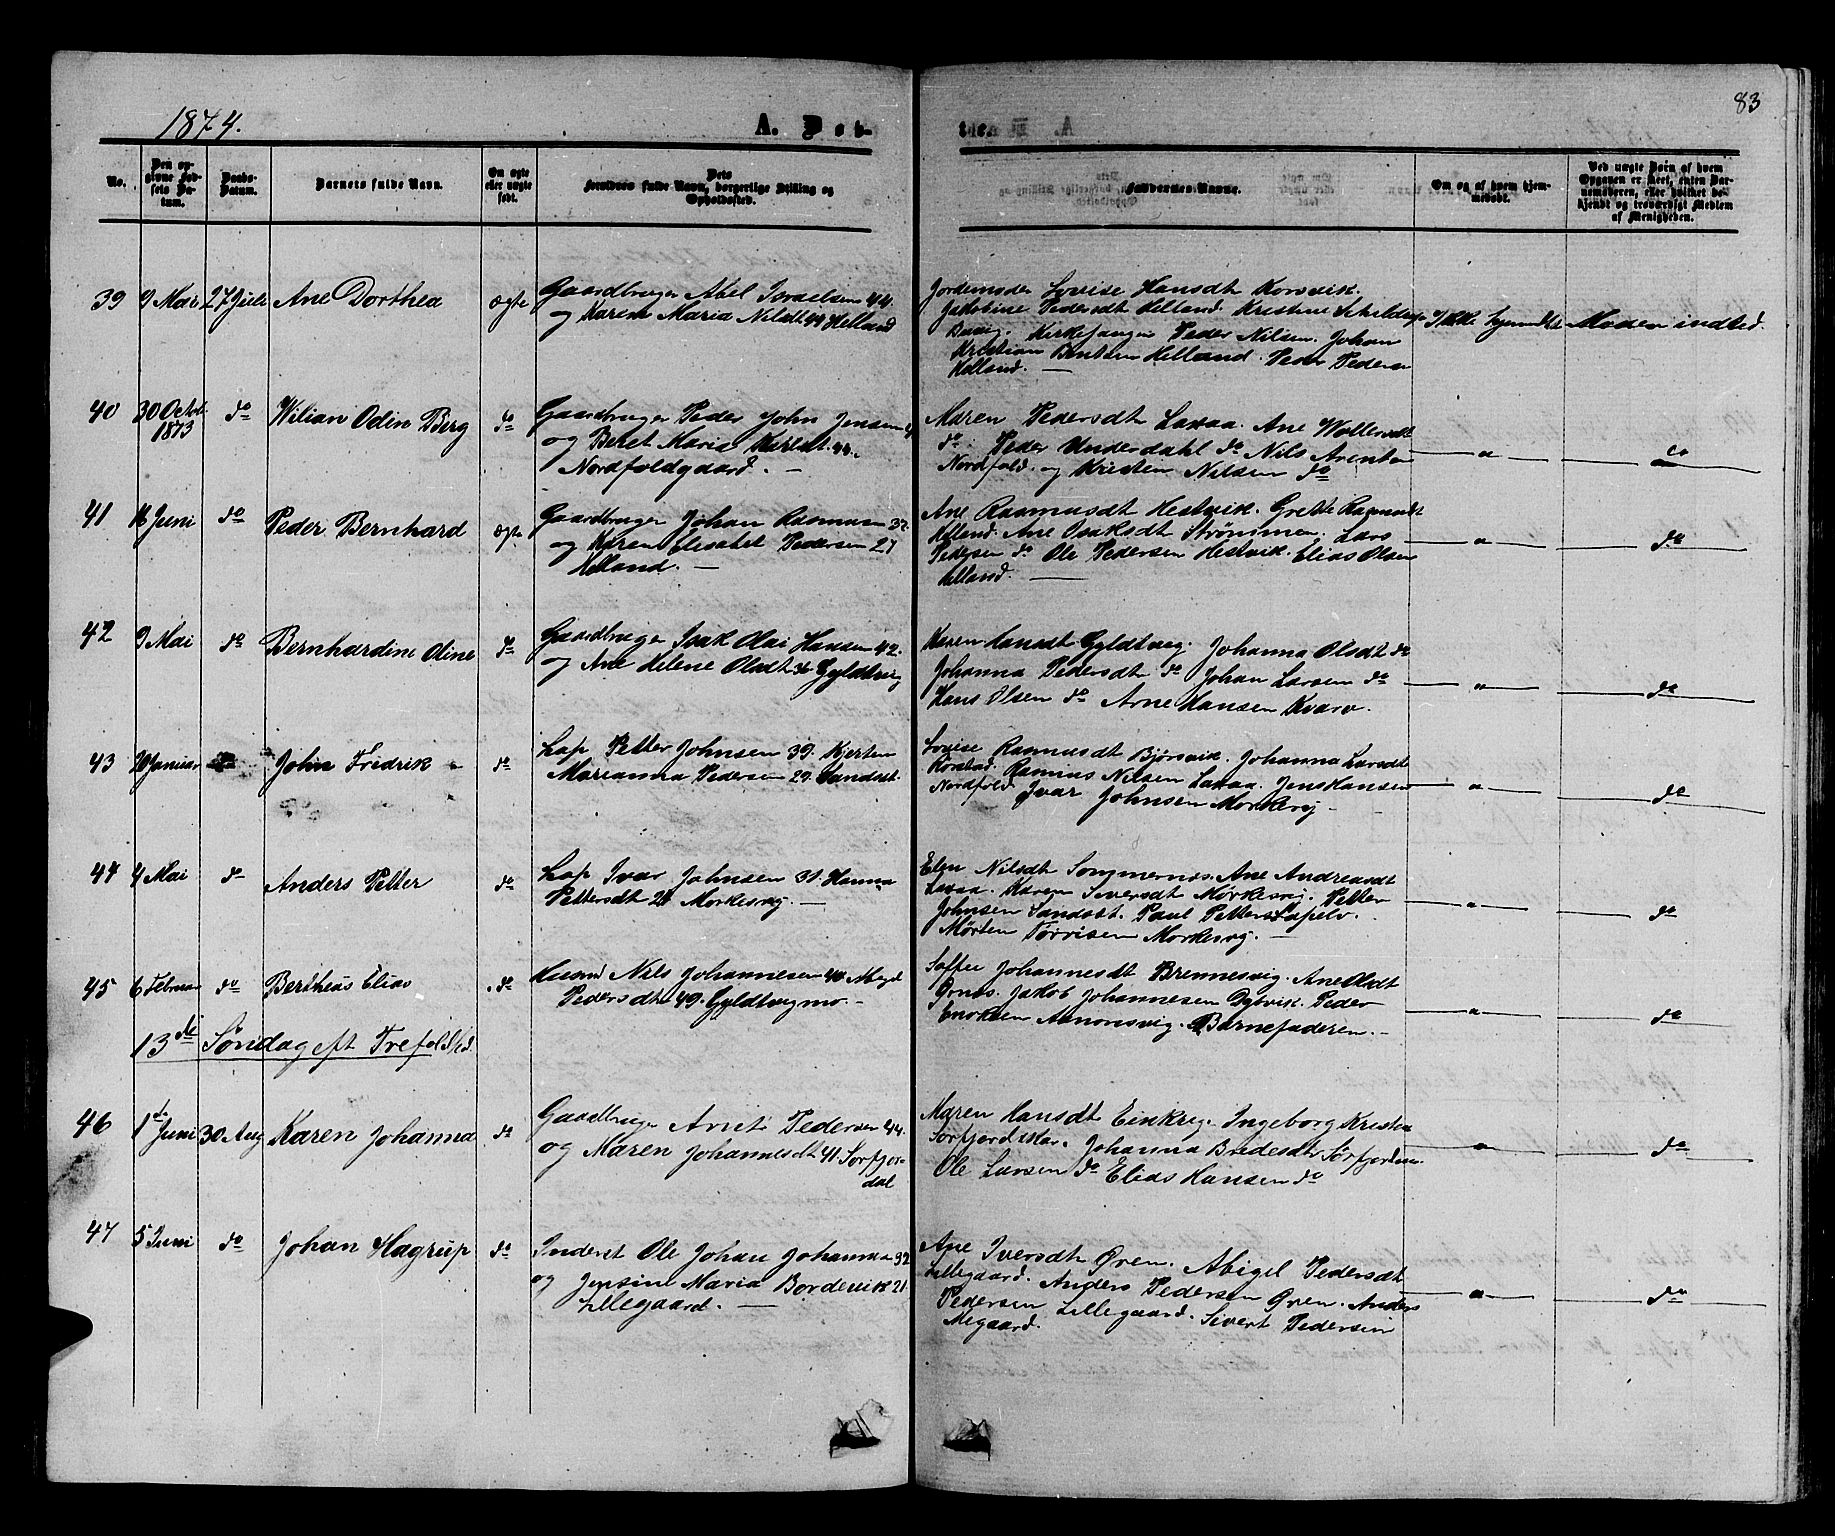 1874.
A. Dø-
83
No.
Den op-
givne Fød-
sels Da-
tum.
Daabs-
Datum.
Barnets fulde Navn.
Om ægte
eller uægte
født.
Dets
Forældres fulde Navn, borgerlige Stilling og
Opholdssted.
Faddernes Navne.
Om og af hvem hjem-
medøbt.
Ved uægte Børn af hvem
Opgaven er skeet, enten Bar-
nemoderen, eller hvilket be-
kjendt og troværdigt Medlem
af Menigheden.
39 9 Mai 27 Juli Ane Dorthea ægte Gaardbruger Abel Israelsen 44.
og Karen Maria Nilsdt 44 Helland
Jordemoder Lovise Hansdt Korsvik.
Jakobine Pedersdt Helland. Kristine Schjeldrup
Kirkesanger Peder Nilsen. Johan
Kristian Bentsen Helland. Peder Pedersen
Helland. —
Ikke hjemmedøbt Moder indted.
40 30 Octob. 1873 do Wilian Odin Berg do Gaardbruger Peder John Jensen
og Beret Maria 44.
Nordfoldgaard. —
Maren Pedersdt Laxaa. Ane Wollersdt
do. Peder Underdahl do Nils Arentsen
Nordfold. og Kristen Nilsen do
— " — do
41 16 Juni do Peder Bernhard ægte Gaardbruger Johan Rasmusen 37.
og Karen Elisabet Pedersen 27
Helland. —
Ane Rasmusdt Hestvik. Grette Rasmusdt
Helland. Ane Isaksdt Strømmen. Lars
Pedersen do Ole Pedersen Hestvik. Elias Olsen
Helland. —
— " — do
42 9 Mai do Bernhardine Oline do Gaardbruger Isak Olai Hansen 42.
og Ane Helene Olsdt 36 Gyldtvig
Karen Hansdt Gyldtvig. Johanna Olsdt do
Johanna Pedersdt do Johan Larsen do
Hans Olsen do Arne Hansen Kvarv.
— " — do
43 20 Januar do John Fredrik do Lap Petter Johnsen 39. Kjersten
Marianna Pedersen 29. Sandset.
Lovise Rasmusdt Bjørsvik. Johanna Larsdt
Rørstad. Rasmus Nilsen Laxaa. Jens Hansen
Nordfold Ivar Johnsen Mørkesvig —
— " — do
44 4 Mai do Anders Petter do Lap Ivar Johnsen 31. Hanna
Pettersdt 21 Morkesvig. —
Elen Nilsdt Sommernes. Ane Andreasdt
Laxaa. Karen Siversdt Mørkesvig. Petter
Johnsen Sandset. Paul Petters
Mørten Torrisen Morkesvig. —
— " — do
45 6 Februar do Bertheus Elias do Husmd Nils Johannesen 40.
Pedersdt 49. Gyldtvigmo. —
Soffie Johannesdt Brennesvig. Ane Olsdt
Ørnes. Jakob Johannesen Dybvik. Peder
Enoksen Aanonsvig. Barnefaderen. —
— " — do
13de Søndag eft Trefoldhd.
46 1ste Juni 30 Aug Karen Johanna do Gaardbruger Arnt Pedersen 44.
og Maren Johannesdt 41. Sørfjor-
dal
Maren Hansdt Einkrig. Ingeborg Kristen
Johanna Bredesdt Sørfjorden.
Ole Larsen do Elias Hansen do
— " — do
47 5 Juni do Johan Hagrup do Inderst Ole Johan Johannsen 32
og Jensine Maria 21
Lillegaard. —
Ane Iversdt Øren. Abigel Pedersdt
Lillegaard. Anders Pedersen Øren. Anders
Pedersen Lillegaard. Sivert Pedersen
Megaard.
— " — do